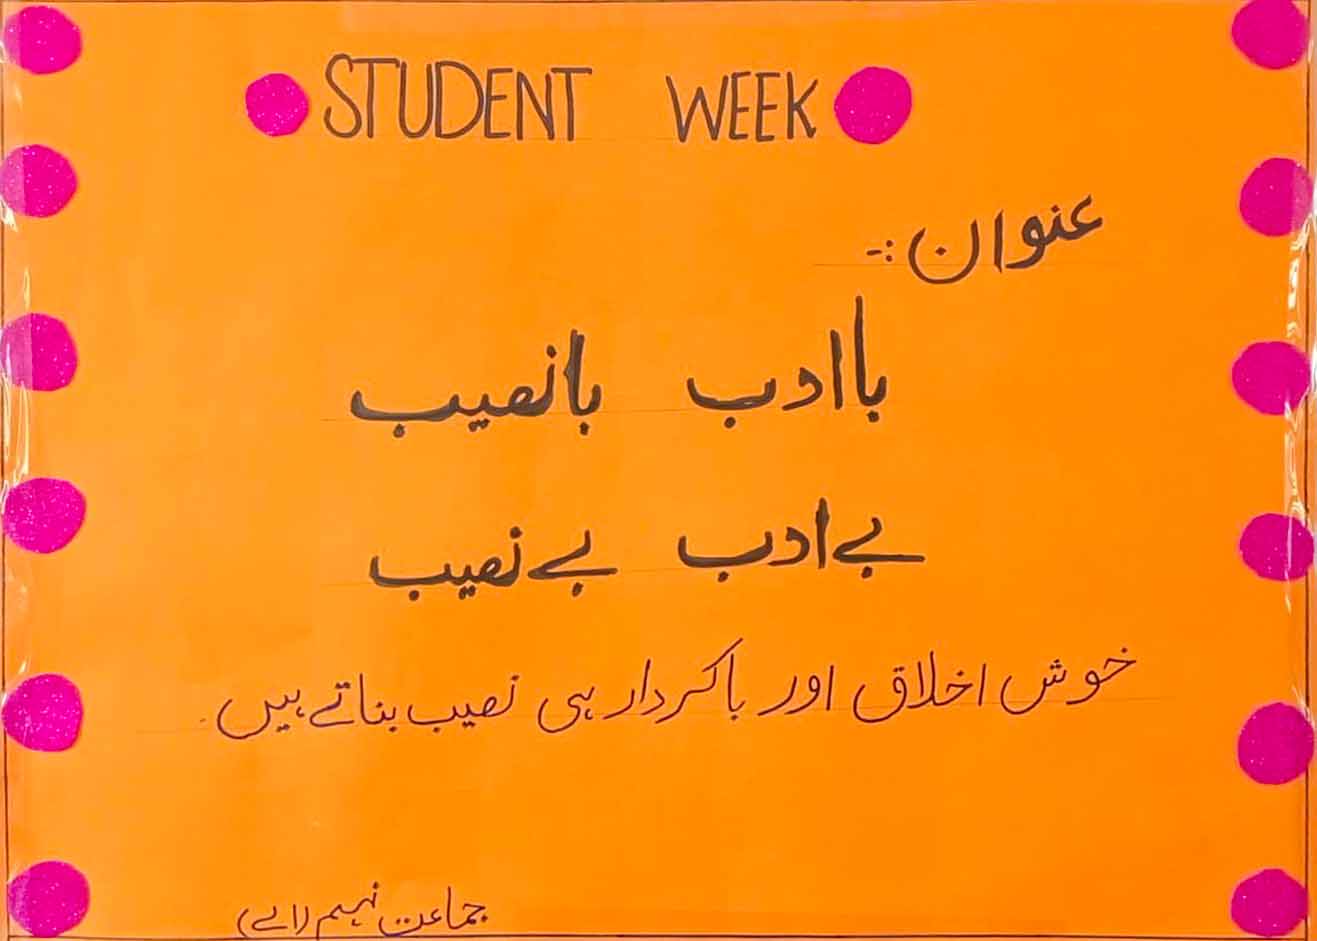 STUDENT WEEK
عنوان :-
با ادب با نصیب
بے ادب بے نصیب
خوش اخلاق اور باکردار ہی نصیب بناتے ہیں۔
جماعت نہم (اے)